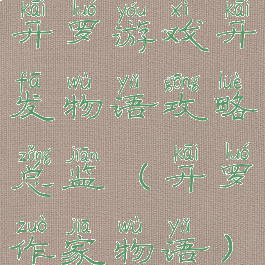 kāi luó yóu xì kāi
开罗游戏开
fā wù yǔ gōng lüè
发物语攻略
zǒng jiān kāi luó
总监（开罗
zuò jiā wù yǔ
作家物语）